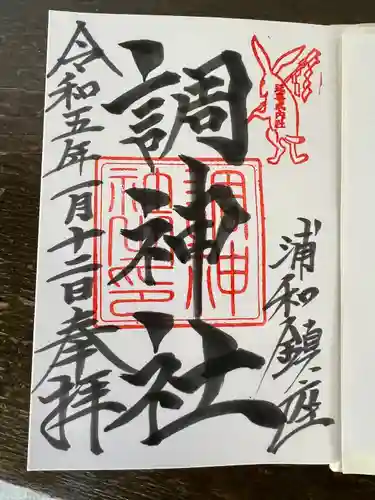 浦和鎮座
調神社
令和五年一月十二日奉拝